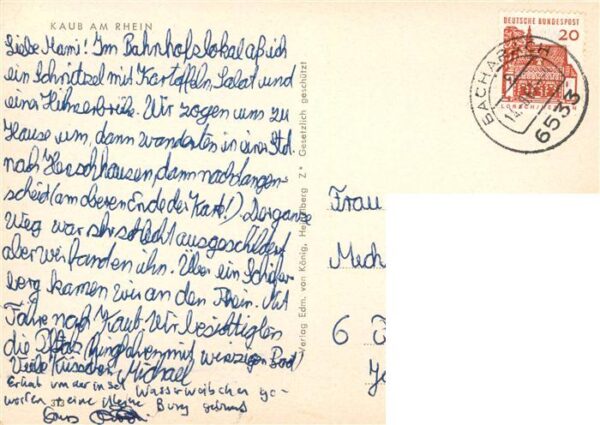 KAUB AM RHEIN
Liebe Mami! Im Bahnhofslokal aß ich
ein Schnitzel mit Kartoffeln, Salat und
einer Hühnerbrühe. Wir zogen uns zu
Hause um, dann wanderten in einer Std.
nach Henschhausen, dann nach Langen-
scheid (am oberen Ende der Karte!). Der ganze
Weg war sehr schlecht ausgeschildert
aber wir fanden ihn. Über ein
berg kamen wir an den Rhein. Mit
Fähre nach Kaub. Wir besichtigten
die Pfalz (hingefahren mit winzigen Boot)
Viele Küsschen Michael
von der Insel Wasserweibchen ge-
worfen eine kleine Burg
Gesetzlich geschützt
Verlag Edm. von König, Heidelberg Z*
DEUTSCHE BUNDESPOST
20
LORSCH/HESSEN
BACHARACH
6533
Frau
Mech
6